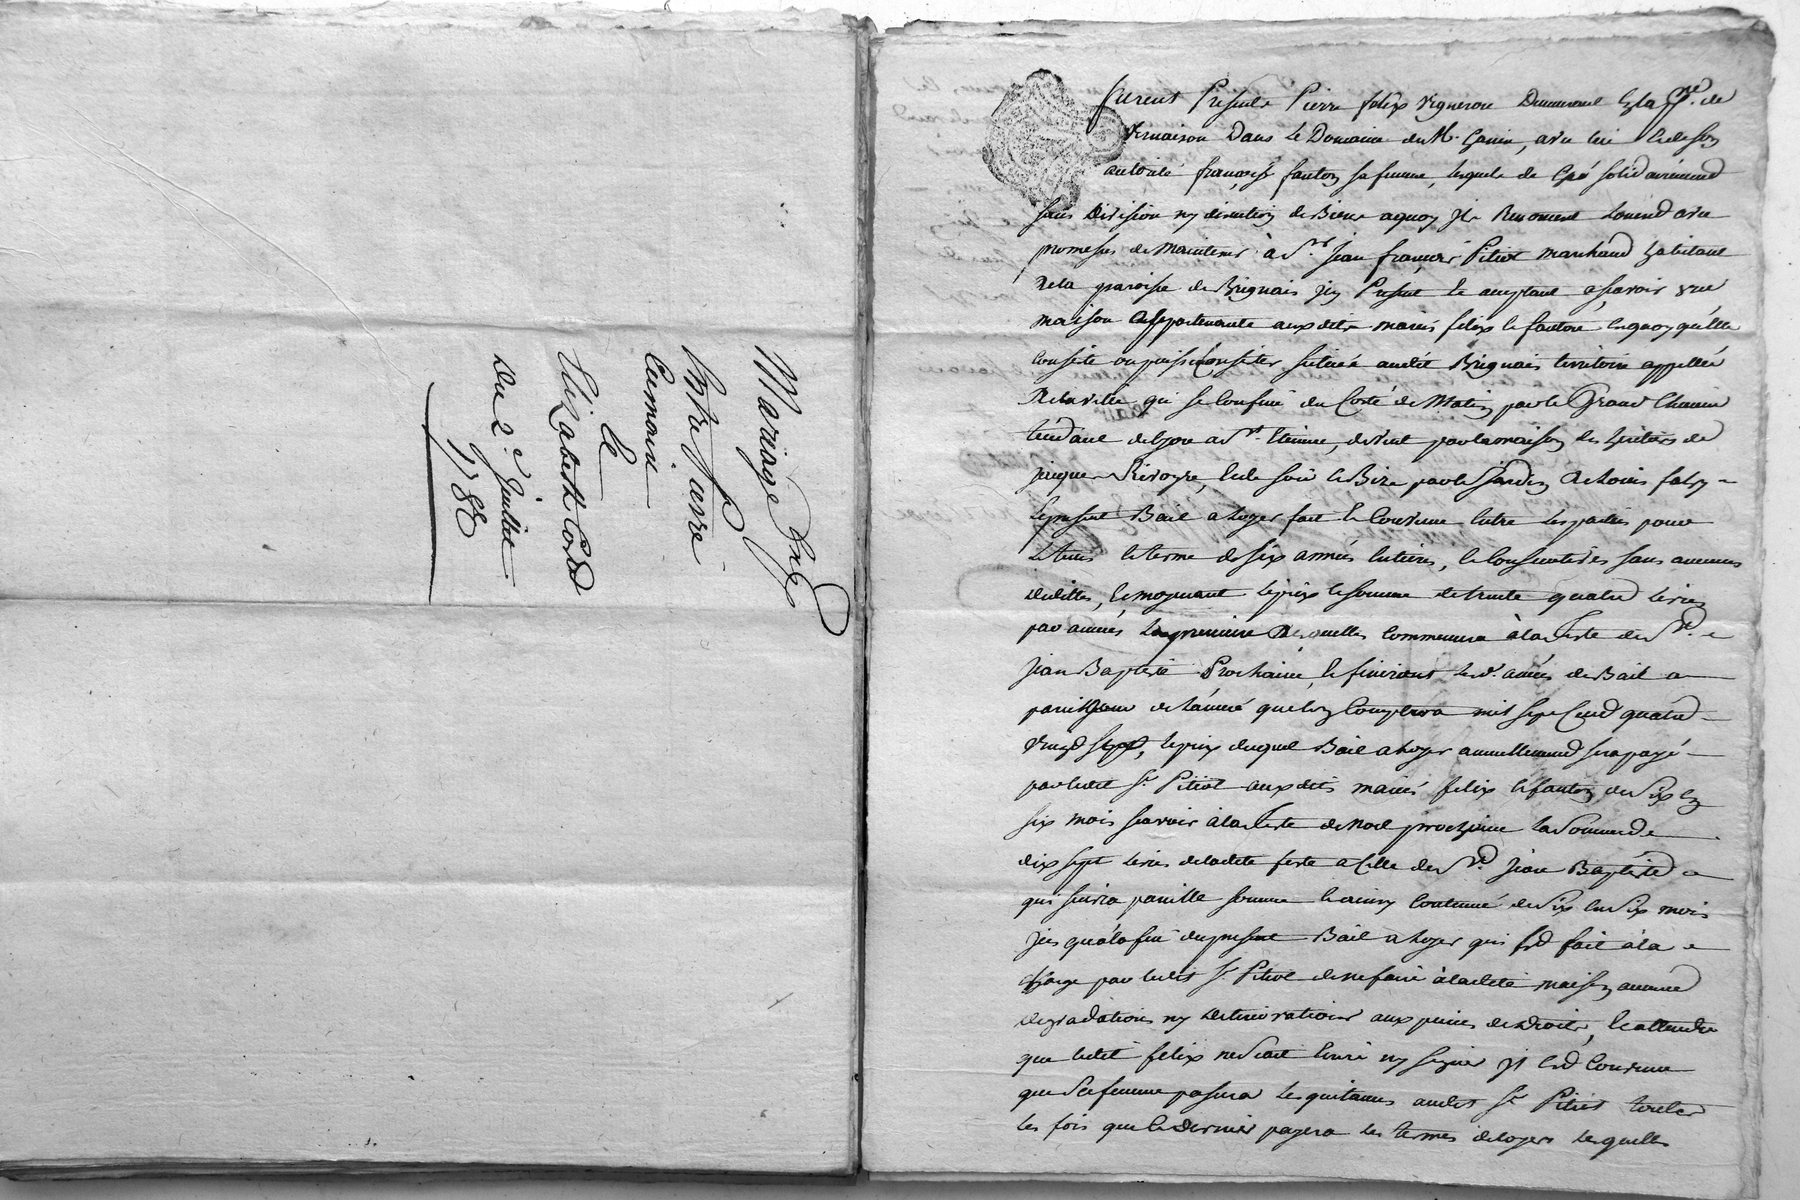 Mariage Entre
Lemoine
Et
Elizabeth Cord
Du 2e Juillet
1788
furent Presents Pierre felix vigneron Demeurant En la psse. de
vernaison Dans Le Domaine du Mr. avec lui Et de son
autorité françoise fanton sa femme, lesquels de Gré solidairement
sans Division ny discution de Biens aquoy Ils Renoncent Louent avec
promesses de Maintenir à Sr. Jean françois Pitiot marchand habitant
De la paroisse de Brignais Icy Present Et aceptant asçavoir une
maison appartenante auxdits mariés felix Et fanton En quoy qu'elle
Consiste ou puisse Consister scituée audit Brignais territoire appellée
De la ville qui se Confine du Coté de Matin par le Grand Chemin
tendant de Lyon a St. Etienne, de vent par la maison des heritiers de
Jacques Et de soir Et Bize par le Jardin De Louis
Le present Bail a Loyer fait Et Convenu Entre Les parties pour
Et terme de six années Entieres, Et Consecutives sans aucunes
Dedittes, Et moyenant Le prix Et somme de trente quatre Livres
par années La premiere Desquelles Commencera à la feste de St.
Jean Baptiste Prochaine, Et finiront Les d. années de Bail a
pareil Jour de L'année que L'on Comptera mil sept Cent quatre
vingt sept, Le prix duquel Bail a Loyer annuellement sera payé
par Ledit Sr. Pitiot aux dits mariés felix Et fanton de Six En
six mois sçavoir à la feste de Noel prochaine La Somme de
dix sept Livres de ladite feste a Celle de St. Jean Baptiste
qui suivra pareille somme Et ainsy Continué de Six En Six mois
Jus qu'à la fin du present Bail a Loyer qui Est fait à la
Charge par Ledit Sr. Pitiot de ne faire à ladite maison aucune
degradations ny Deteriorations aux peines de Droits, Et attendu
que Ledit felix ne Scait Ecrire ny signer Il Est Convenu
que Sa femme passera Les quitances audit Sr. Pitiot toutes
Les fois que Ce Dernier payera Les termes de Loyers Lesquelles